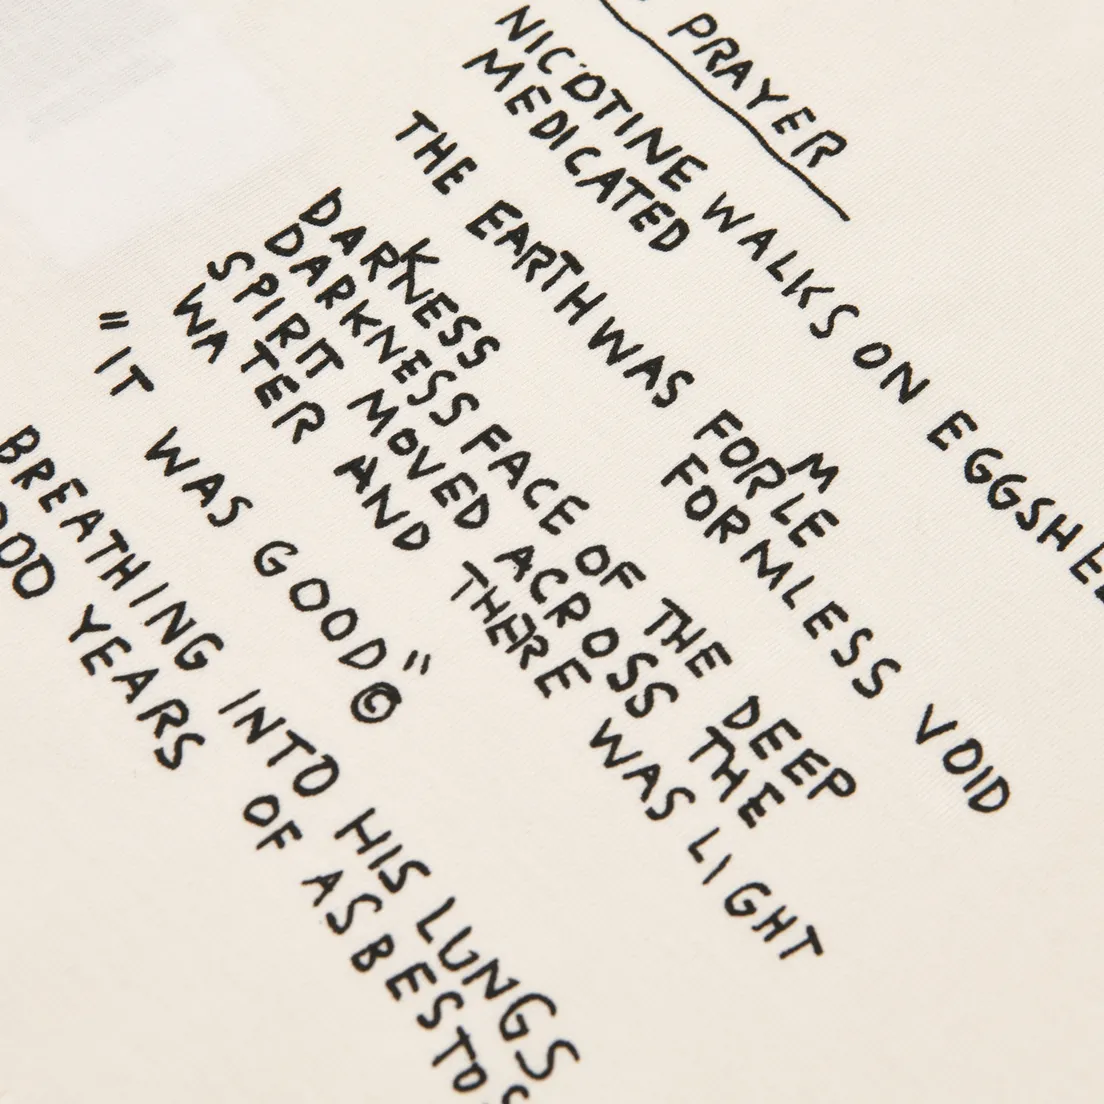 PRAYER
NICOTINE WALKS ON EGGSHE
MEDICATED
THE EARTH WAS FORMLE
FORMLESS VOID
DARKNESS
DARKNESS FACE OF THE DEEP
SPIRIT MOVED ACROSS THE
WATER AND THERE WAS LIGHT
"IT WAS GOOD"©
BREATHING INTO HIS LUNGS
00 YEARS OF ASBESTOS